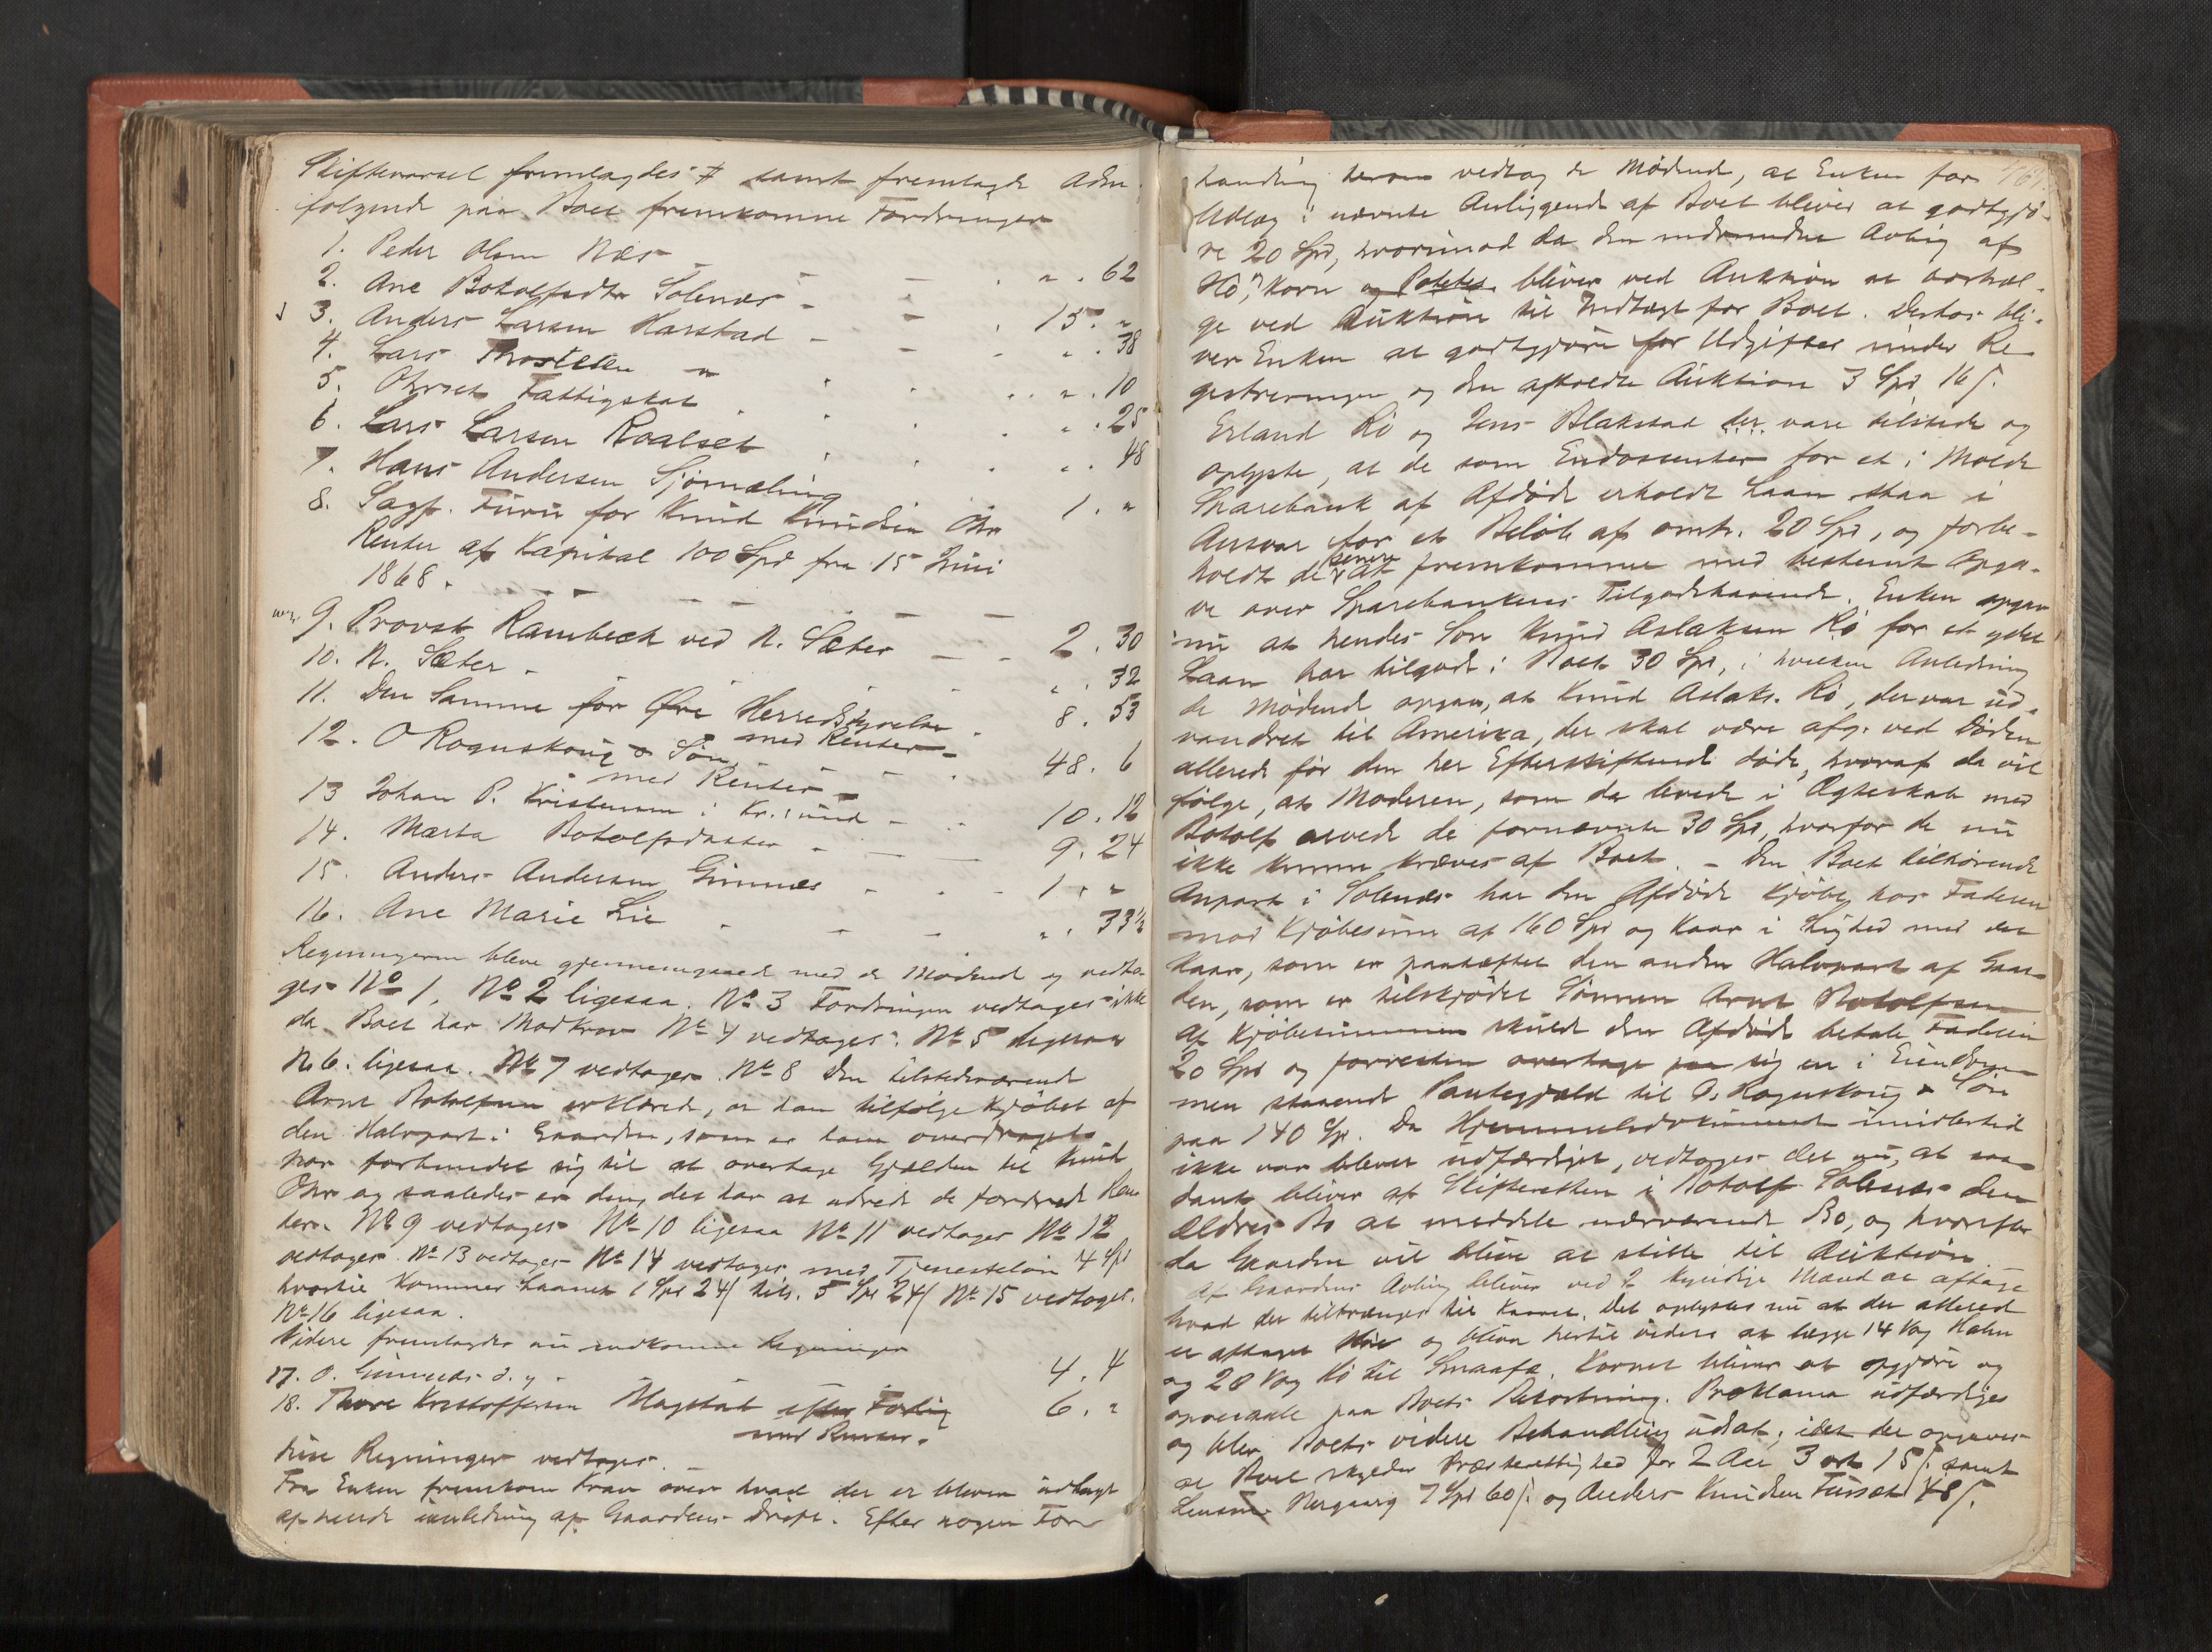 Skiftevarsel fremlagdes # samt fremlagde Adm.
følgende paa Boet fremkomne Fordringer
1. Peder Olsen Næs - - . " . 62
2. Ane Botolfsdtr Solenes - - . 15. "
3. Anders Larsen Harstad - - - " . 38
4. Lars Thostesen " . . . . " . 10
5. Ohrset Fattigskat . . . " . 25
6. Lars Larsen Roalset . . . " . 48
7. Hans Andersen Sjømæling 1. "
8. Sagf. Furu for Knud Knudsen Ohr
Renter af Kapital 100 Spd fra 15 Juni
1868. - - - - - 2. 30
9. Provst Rambech ved N. Sæter - - " . 32
10. N. Sæter - - - . . 8. 53
11. Den Samme for Øre Herredstyrelse
med Renter - 48. 6
12. O Roguskoug & Søn
med Renter - 10. 12
13 Johan P. Kristensen i Kr.sund - - 9. 24
14. Marta Botolfsdatter - - - 1. "
15. Anders Andersen Gimnes - - - " . 33½
16. Ane Marie Lie - - -
Regningerne bleve gjennemgaaede med de Mødende og vedto-
ges No 1, No 2 ligesaa. No 3 Fordringen vedtages ikke
da Boet har Modkrav No 4 vedtages. No 5 ligesaa
N. 6. ligesaa. No 7 vedtages. No 8 Den tilstedeværende
Arnt Botolfsen erklærede, at han tilfølge Kjøbet af
den Halvpart i Gaarden, som er ham overdraget
har forbundet sig til at overtage Gjælden til Knud
Ohr og saaledes er den, der har at udrede de fordrede Ren
ter. No 9 vedtages No 10 ligesaa No 11 vedtages No 12
vedtages. No 13 vedtages No 14 vedtages med Tjenesteløn 4 Spd
hvortil kommer Laanet 1 Spd 24/ tils. 5 Spd 24/ No 15 vedtages.
No 16 ligesaa.
Videre fremlagdes nu indkomne Regninger
17. O. Gimnes d. y - 4. 4
18. Thore Kristoffersen Magstat efter Forlig 6. "
med Renter.
disse Regninger vedtages.
Fra Enken fremkom Krav over hvad der er bleven udlagt
af hende i anledning af Gaardens Drift. Efter nogen For-
handling herom vedtog de Mødende, at Enken for
Udlæg i nævnte Anliggende af Boet bliver at godtgjø-
re 20 Spd, hvorimod da den indvundne Avling af
Hø, Korn og Potetes bliver ved Auktion at borhol-
ge ved Auktion til Indtægt for Boet. Desfor. bli-
ver Enken at godtgjøre for Udgifter under Re-
gistreringen og den afholdte Auktion 3 Spd 16/.
Erland Rø og Jens Blakstad der vare tilstede og
oplyste, at de som Endossenter for et i Molde
Sparebank af Afdøde erholdt Laan staa i
Ansvar for et Beløb af omtr. 20 Spd, og forbe-
holdt de senere at fremkomme med bestemt Opga-
ve over Sparebankens Tilgodehavende. Enken opgav
nu at hendes Søn Knud Aslaksen Rø for et ydet
Laan har tilgode i Boet 30 Spd, i hvilken Anledning
de Mødende opgav, at Knud Aslaks. Rø, der var ud-
vandret til Amerika, der skal være afg. ved Døden
allerede før den her Efterskiftende døde, hvoraf da vil
følge, at Moderen, som da levede i Ægteskab med
Botolf arvede de fornævnte 30 Spd, hvorfor de nu
ikke kunne kræves af Boet. - Den Boet tilhørende
Anpart i Solenes har den Afdøde kjøbt hos Faderen
mod Kjøbesum af 160 Spd og Kaar i Lighed med det
Kaar, som er paahæftet den anden Halvpart af Gaar-
den, som er tilskjødet Sønnen Arnt Botolfsen
Af Kjøbesummen skulde den Afdøde betale Faderen
20 Spd og forresten overtage paa sig en i Eiendom-
men staaende Pantegjæld til O. Roguskoug & Søn
paa 140 Spd. Da Hjemmelsdokument imidlertid
ikke var blevet udfærdiget, vedtoges det nu, at saa-
dant bliver af Skifteretten i Botolf Solenes den
ældres Bo at meddele nærværende Bo, og hvorefter
da Gaarden vil blive at stille til Auktion.
Af Gaardens Avling bliver ved 2 kyndige Mænd at aftage
hvad der tiltrænges til Kaaret. Det oplystes nu at der allerede
er aftaget Hø og bliver hertil videre at lægge 14 Vog Halm
og 20 Vog Hø til Smaafæ. Kornet bliver at opgjøre og
opveiede paa Boets Bekostning. Proklama udfærdiges
og blev Boets videre Behandling udsat, idet der opgaves
at Boet skylder Præsterettighed for 2 Aar 3 ort 15/. samt
Lensm. Norgaarg 7 Spd 60/. og Anders Knudsen Furset 48/.